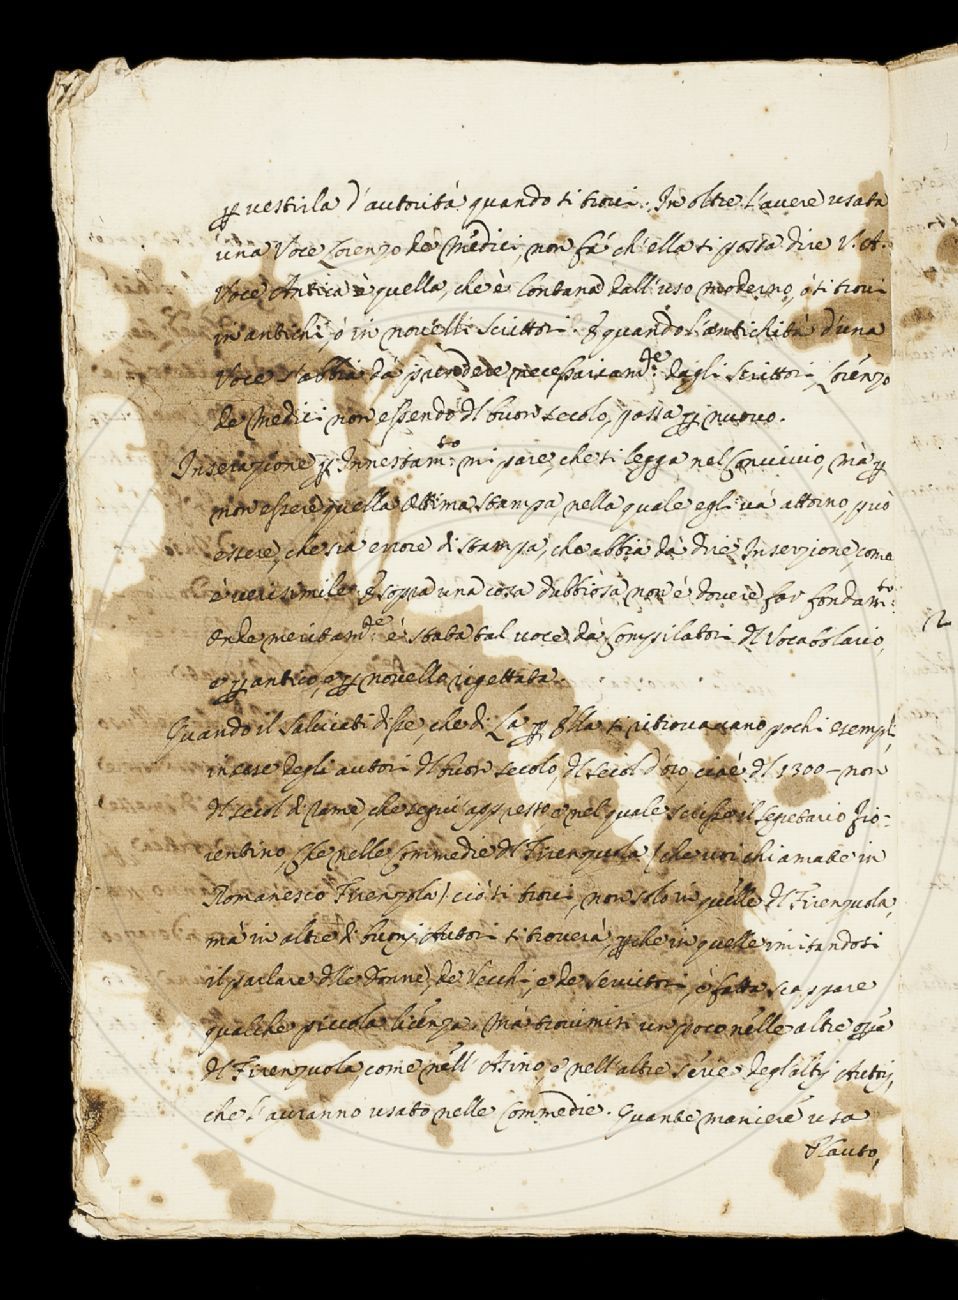 ꝑ vestirla d'autorità quando si trovi. In oltre l'avere usata
una Voce Lorenzo de Medici, non fà ch'ella si possa dire V. A.
Voce Antica è quella, che è lontana dall'uso moderno, ò si trovi
in antichi, ò in novelli scrittori. E quando l'antichità d'una
Voce s'abbia dà prendere necessariam.te dagli Scrittori, Lorenzo
de Medici non essendo dl buon secolo, passa ꝑ nuovo.
Inserazione ꝑ Innestam.to mi pare, che si legga nel Convivio, mà ꝑ
non essere quella ottima stampa, nella quale egli và attorno, può
essere, che sia errore di stampa, che abbia dà dire Inserzione, come
è verisimile. E sopra una cosa dubbiosa non è dovere far fondam.to
onde meritam.te è stata tal voce dà Compilatori dl Vocabolario,
o ꝑ antico, o ꝑ novella rigettata.
Quando il Salviati disse, che di La ꝑ Ella si ritrovavano pochi esempli,
intese degli autori dl buon secolo, dl secol d'oro, cioè dl 1300 - non
dl secol di rame, che seguì appresso, e nel quale scrisse il Segretario Fio-
rentino, Che nelle Commedie dl Firenzuola / che voi chiamate in
Romanesco Firenzola / ciò si trovi, non solo in quelle dl Firenzuola,
mà in altre di buoni Autori si troverà, ꝑche in quelle imitandosi
il parlare dlle Donne, de Vecchi, e de Servitori, è fatta scappare
qualche piccola licenza. Mà trovimisi un poco nelle altre
dl Firenzuola, come nell'Asino, e nell'altre serie degl'altri Autori,
che l'avranno usato nelle Commedie. Quante maniere usa
Plauto,
2